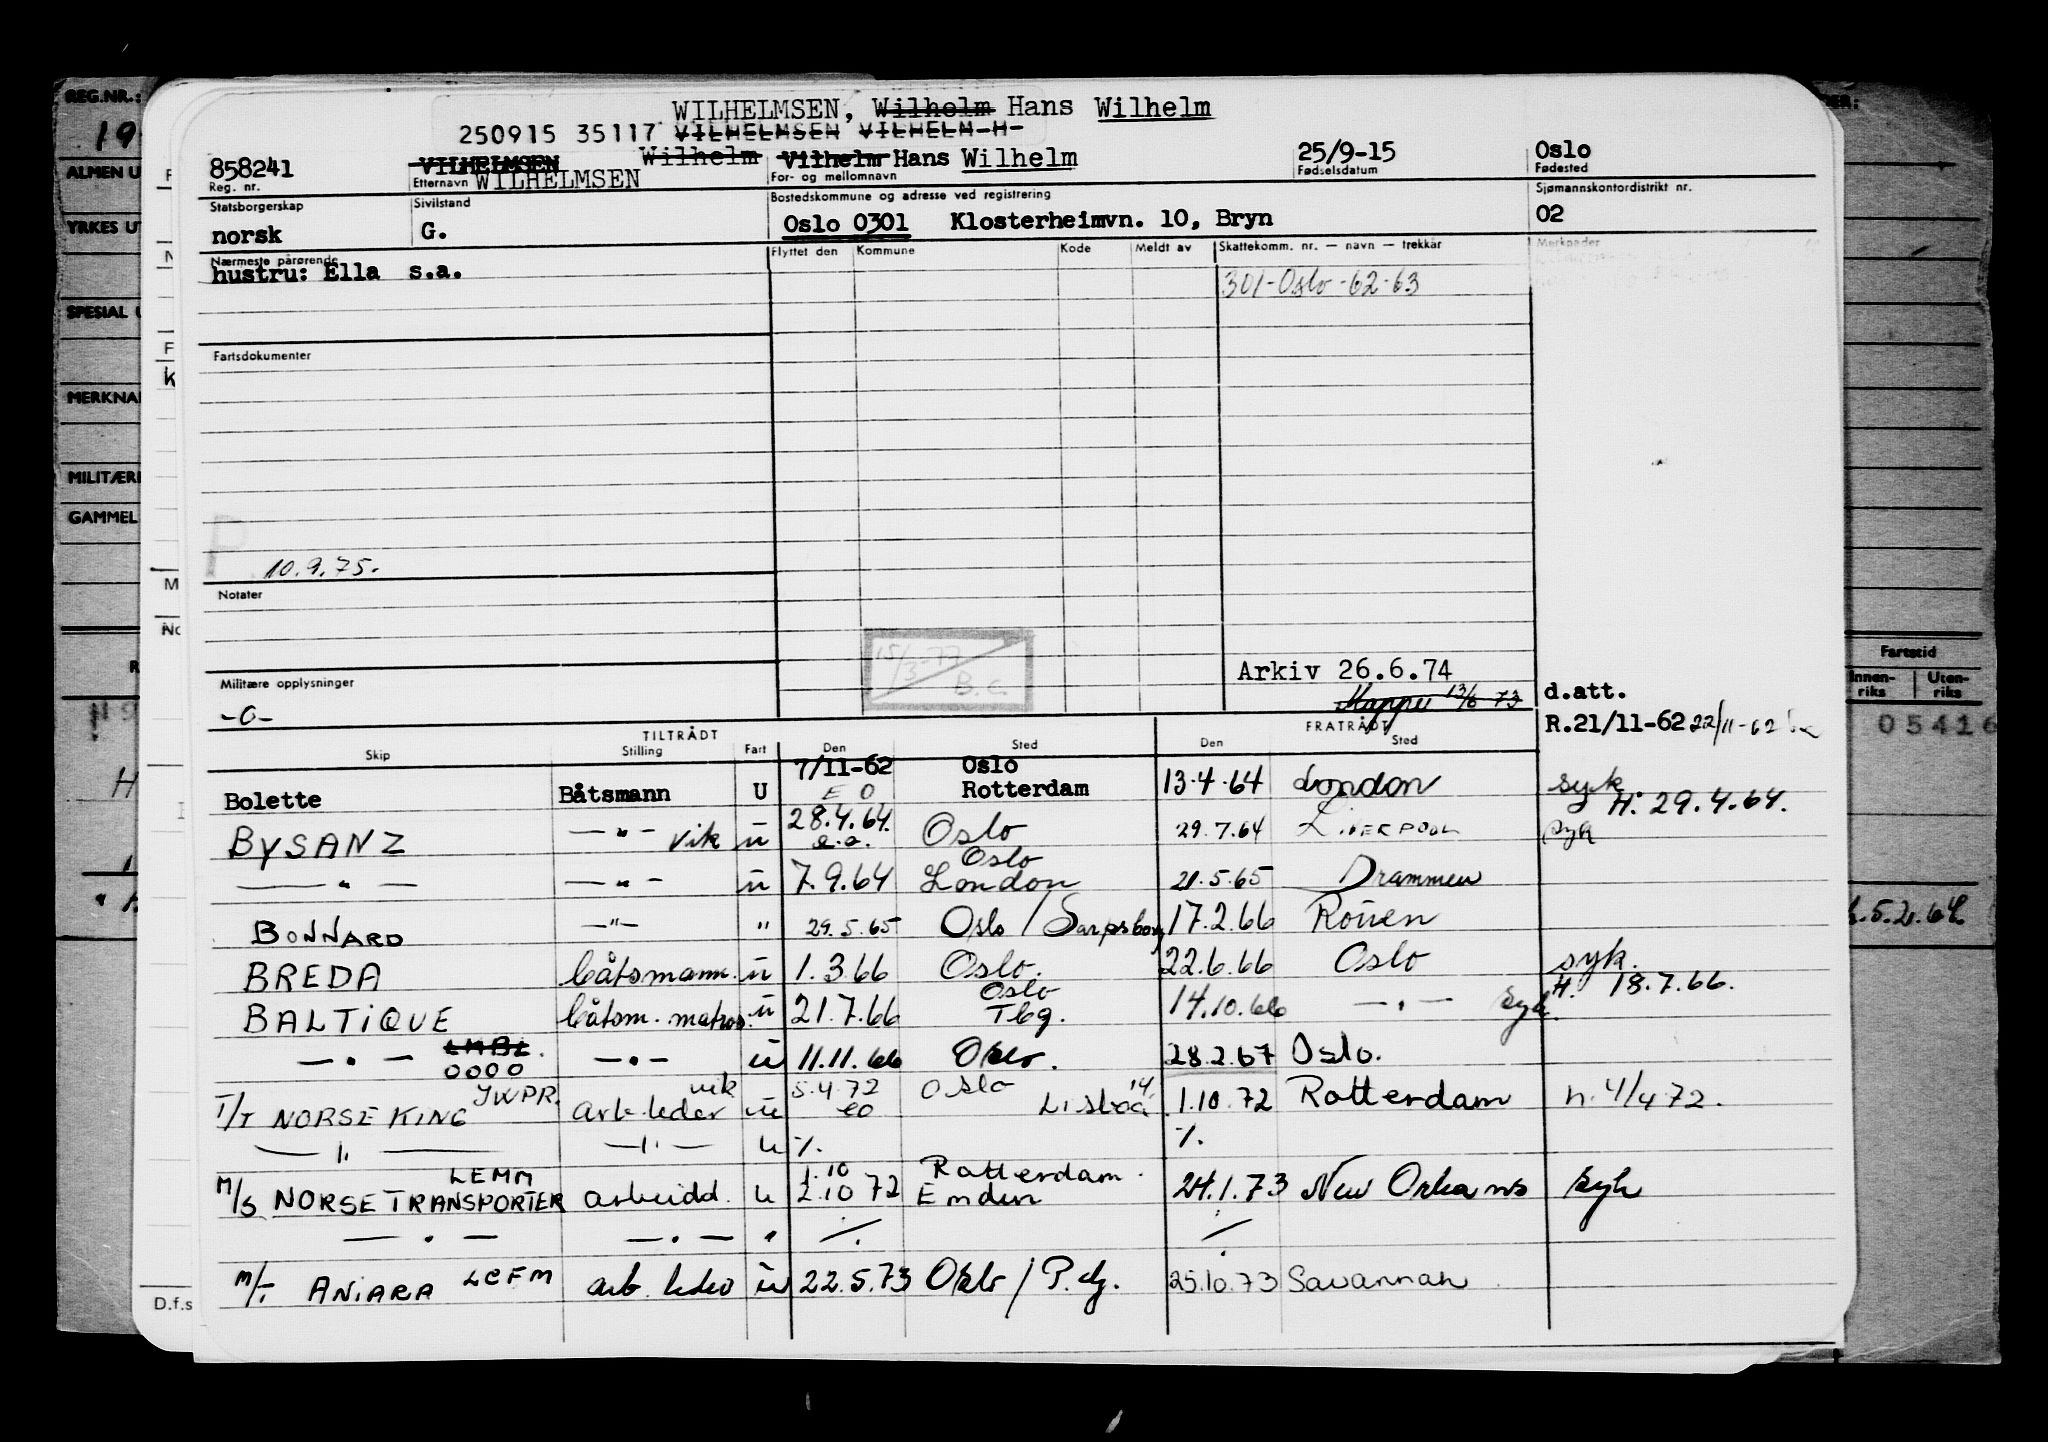 WILHELMSEN, Wilhelm Hans Wilhelm
250915 35117 VILHELMSEN VILHELM H-
Wilhelm Vilhelm Hans Wilhelm
858241 VILHELMSEN 25/9-15 Oslo
Reg. nr. Etternavn WILHELMSEN For- og mellomnavn Fødselsdatum Fødested
Statsborgerskap Sivilstand Bostedskommune og adresse ved registrering Sjømannskontordistrikt nr.
norsk G. Oslo 0301 Klosterheimvn. 10, Bryn 02
Nærmeste pårørende Flyttet den Kommune Kode Meldt av Skattekomm. nr. — navn — trekkår Merknader
hustru: Ella s.a. 301-Oslo-62-63
Fartsdokumenter
P 10.9.75.
Notater
15/3-73 B.C.
Arkiv 26.6.74
Militære opplysninger
Mappe 13/6 73
d.att.
-0-
R.21/11-62 22/11-62
TILTRÅDT FRATRÅDT
Skip Stilling Fart Den Sted Den Sted
7/11-62 Oslo
Bolette Båtsmann U E O Rotterdam 13.4.64 London syk H. 29.4.64.
BYSANZ —"— vik ū 28.4.64. e.o. Oslo 29.7.64 LIVERPOOL syk
—"— —"— ū 7.9.64 Oslo London 21.5.65 Drammen
BONNARD —"— " 29.5.65 Oslo / Sarpsborg 17.2.66 Rouen
BREDA båtsmann. ū 1.3.66 Oslo. 22.6.66 Oslo syk.
H. 18.7.66.
BALTIQUE båtsm. matros. ū 21.7.66 Oslo Tbg. 14.10.66 —"— syk.
—"— LMBL. OOOO —"— ū 11.11.66 Oslo. 28.2.67 Oslo.
T/T NORSE KING JWPR. arb. leder vik ū 5.4.72 eo Oslo Lisboa 14/ 1.10.72 Rotterdam h. 4/4 72.
—"— —"— u ·/. ·/.
M/S NORSE TRANSPORTER LEMM arbeidd. u 1.10 2.10 72 Rotterdam. Emden 24.1.73 New Orleans syk
—"— —"— " ·/. ·/.
M/T ANIARA LCFM arb. leder ū 22.5.73 Oslo / P. 25.10.73 Savannah
REG.NR.:
19
ALMEN U
YRKES UT
SPESIAL U
MERKNA
MILITÆR
GAMMEL
D.f.s
Fartstid
Innenriks Utenriks
05416
5.2.64